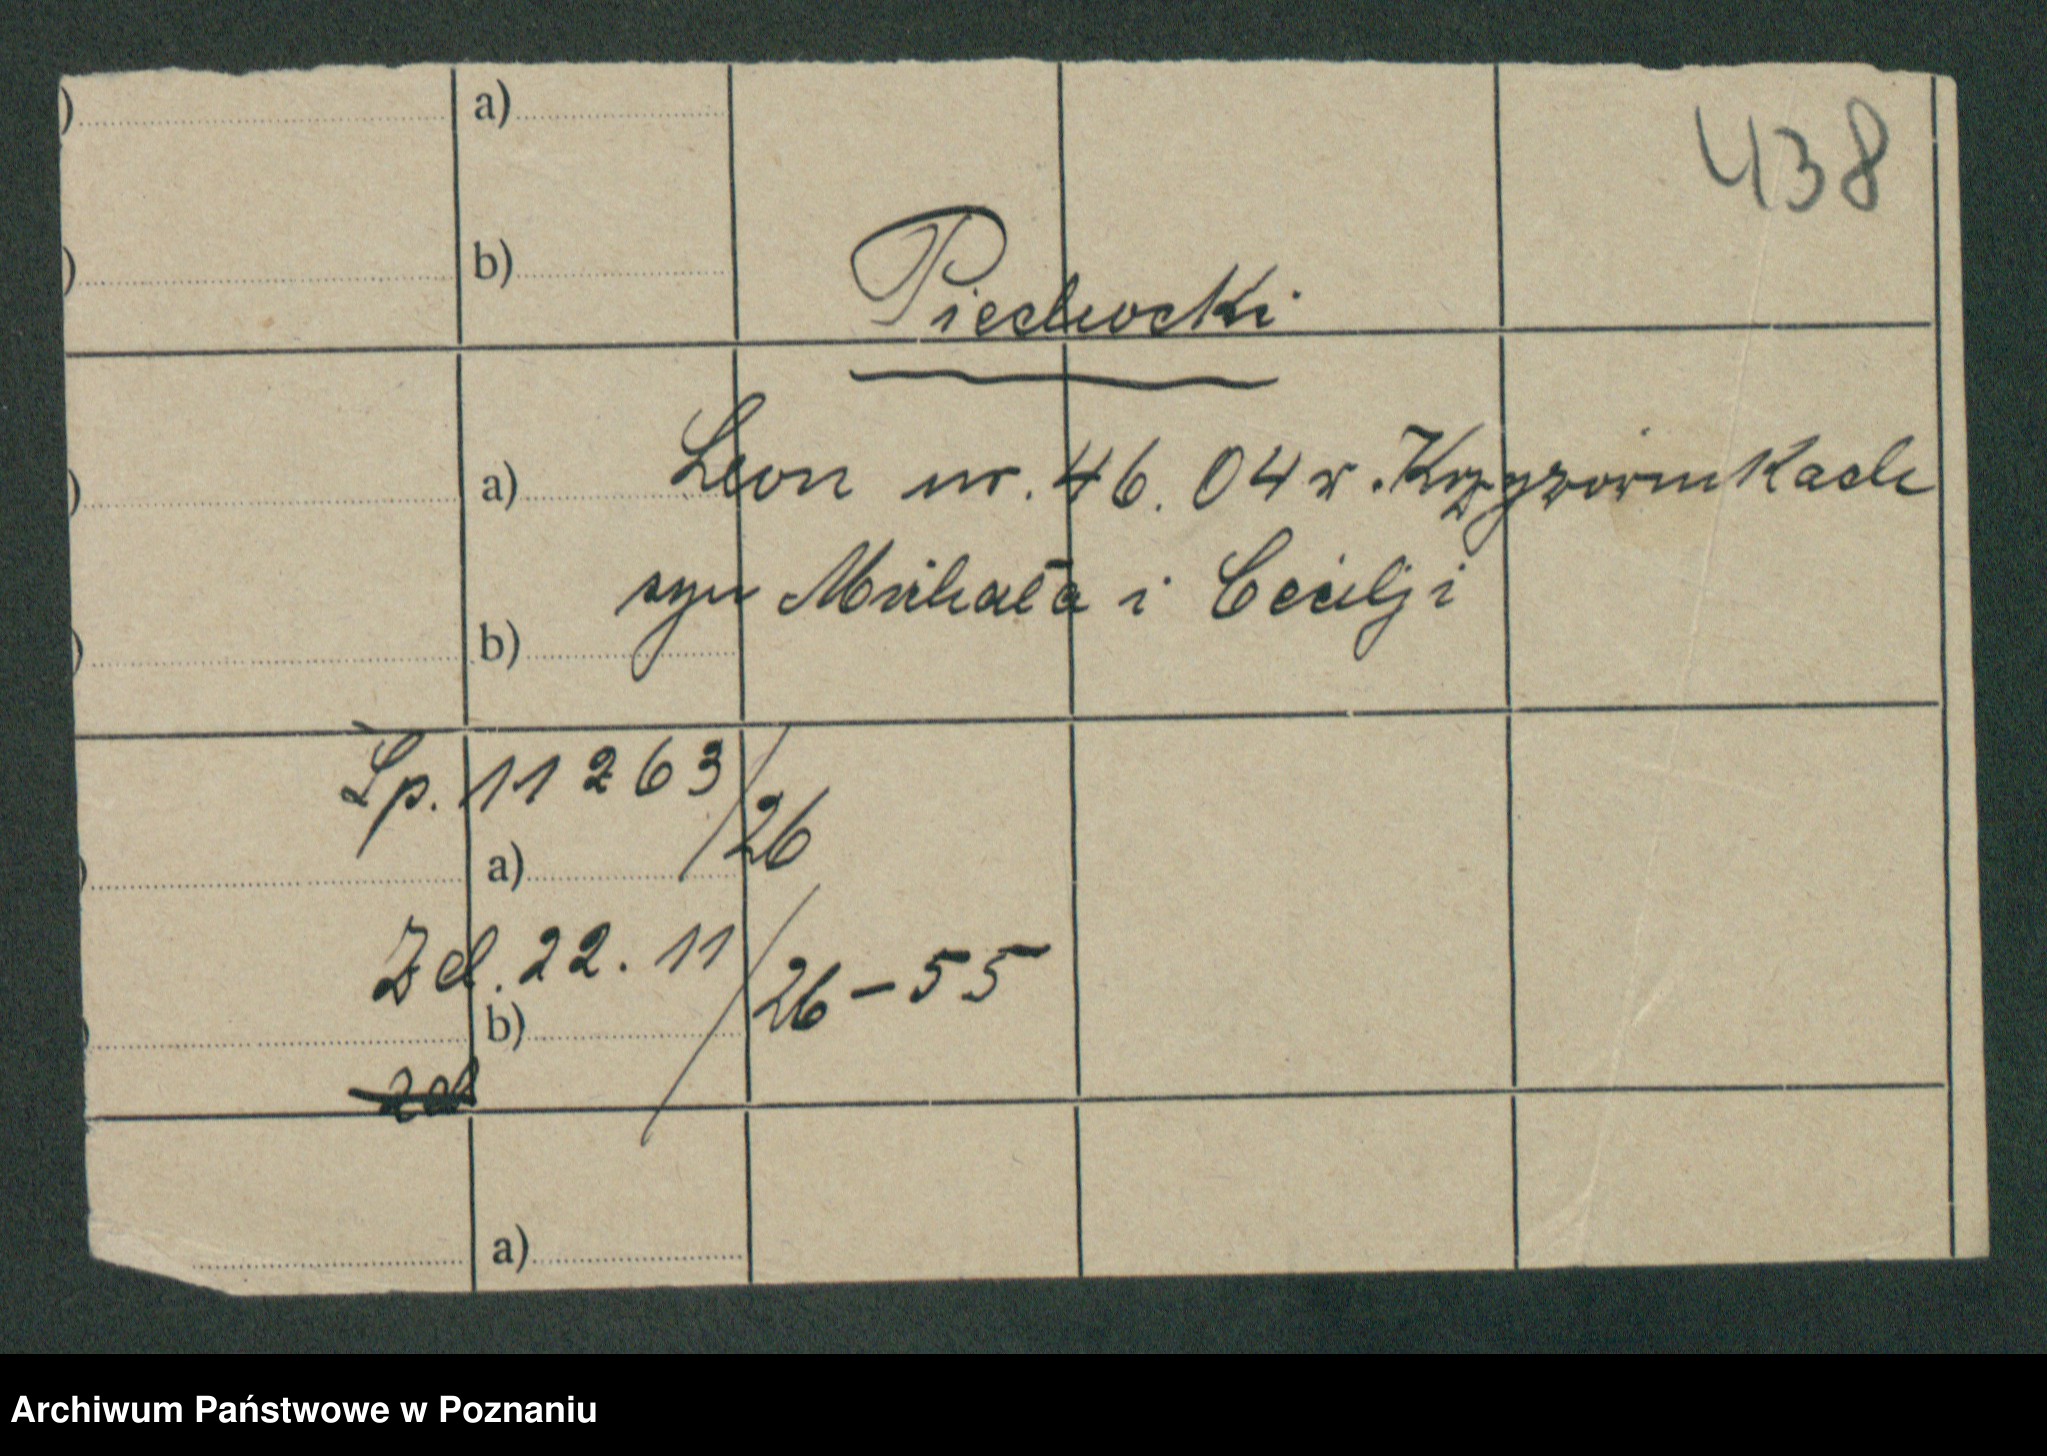 438
) a)
) b)
Piechocki
) a) Leon ur. 4 6. 04 r. Krzyżownikach
syn Michała i Cecilji
) b)
Lp. 11263/26
) a)
Zd. 22. 11/26 - 55
) b)
a)
Archiwum Państwowe w Poznaniu